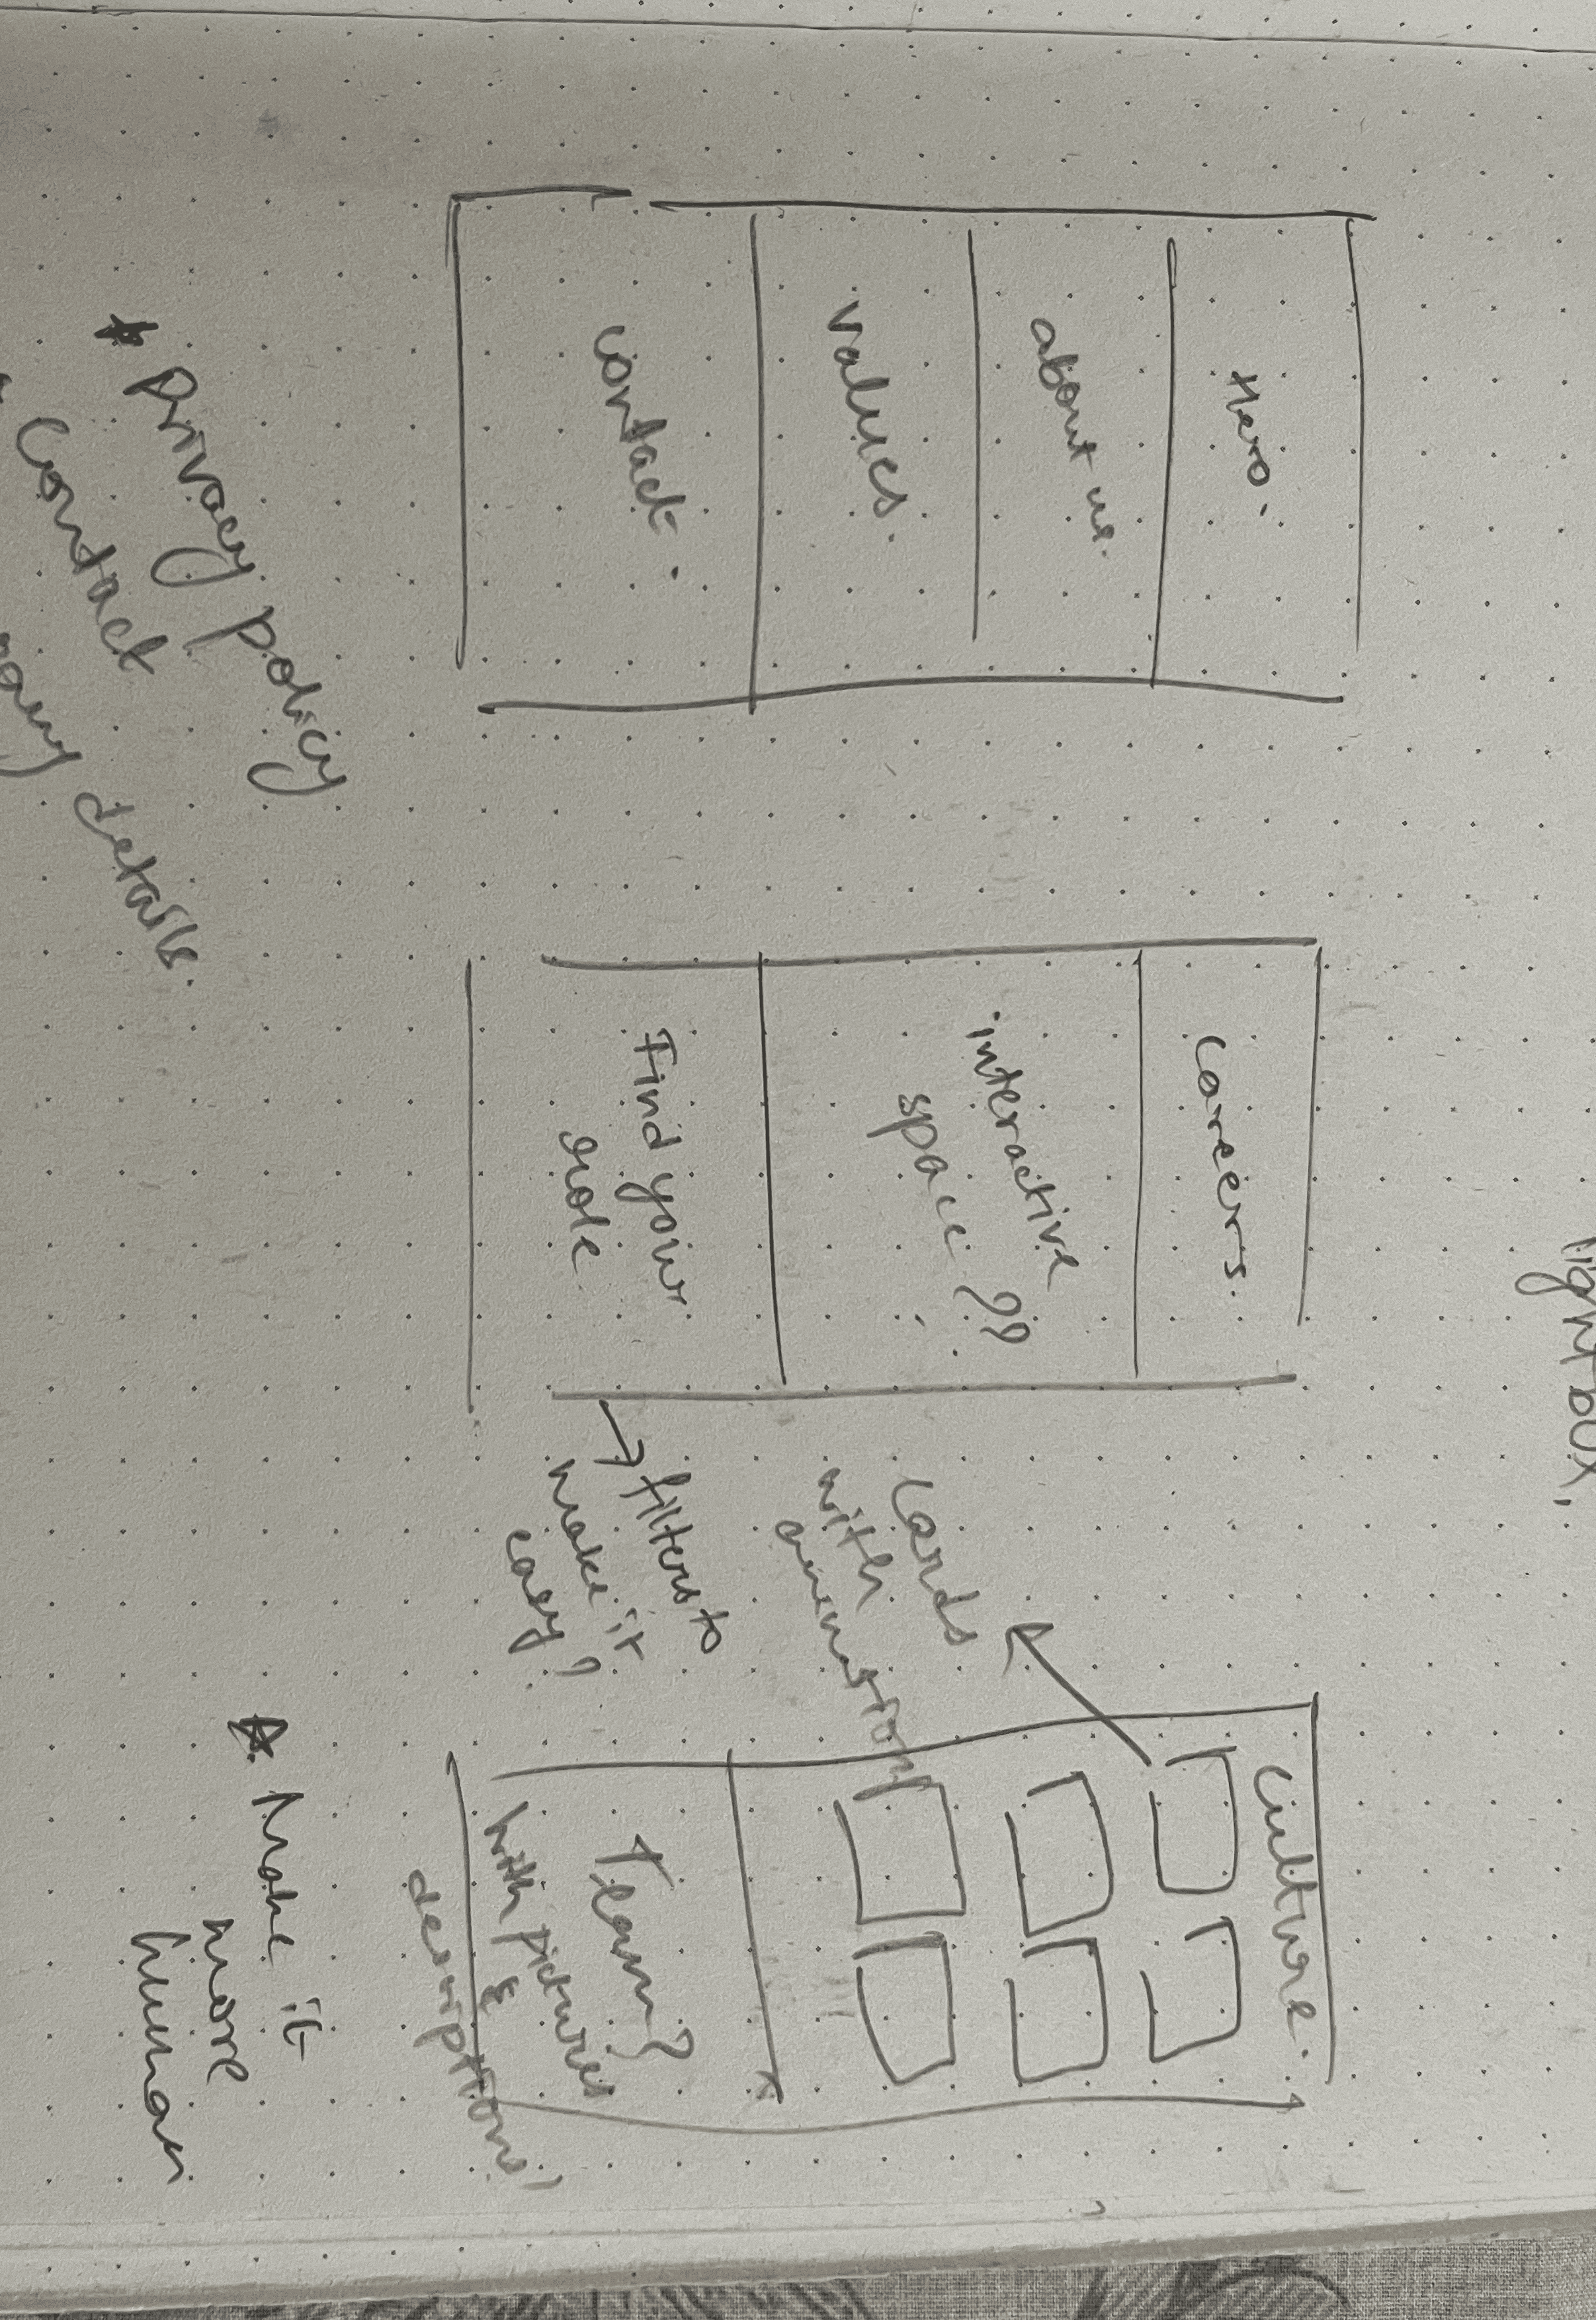 lightbox,
Hero.
about us.
values.
contact.
Careers.
interactive
space ??
Find your
role
→ filters to
make it
easy?
Culture.
Cards
with
animation
Team?
with pictures
&
descriptions!
* Privacy policy
Contact
details.
* Make it
more
human